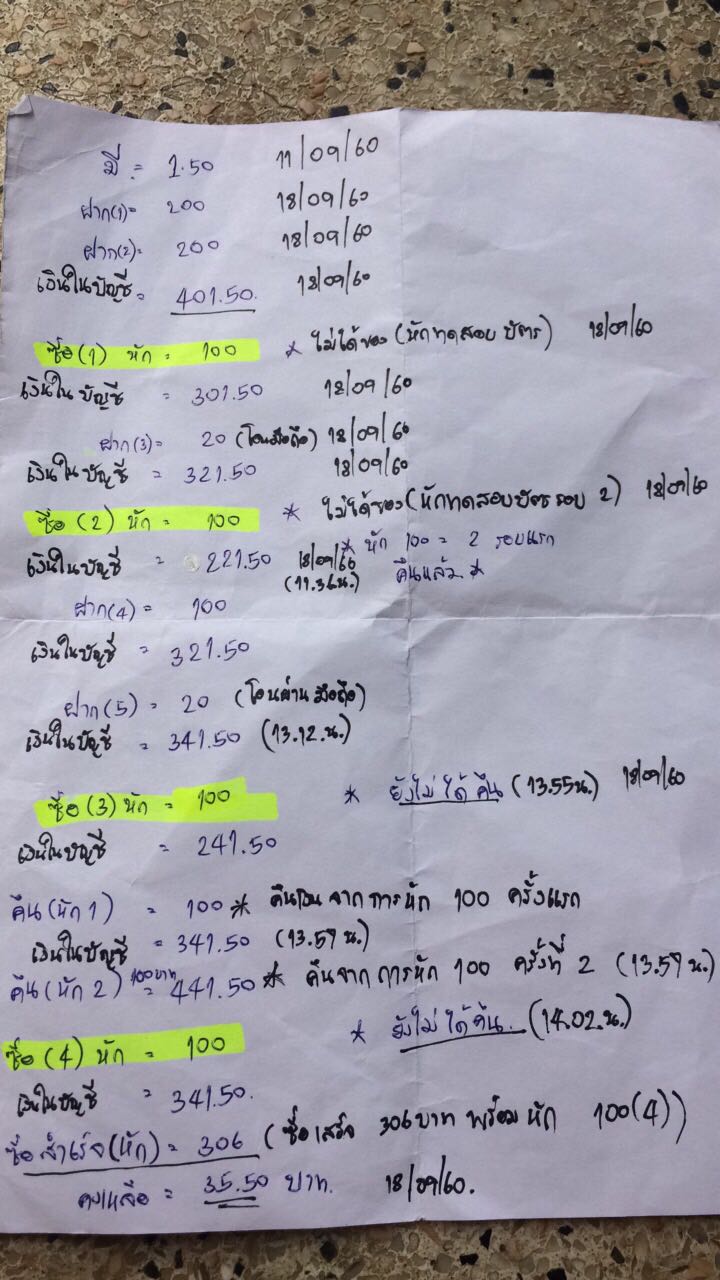 มี = 1.50 11/09/60
ฝาก(1)= 200 18/09/60
ฝาก(2)= 200 18/09/60
เงินในบัญชี = 401.50. 18/09/60
ซื้อ(1) หัก = 100 * ไม่ได้ของ (หักทดสอบ บัตร) 18/09/60
เงินใน บัญชี = 301.50 18/09/60
ฝาก(3)= 20 (โอนมือถือ) 18/09/60
เงินใน บัญชี = 321.50 18/09/60
ซื้อ (2) หัก = 100 * ไม่ได้ของ (หักทดสอบบัตร รอบ 2) 18/09/60
* หัก 100 = 2 รอบแรก
เงินในบัญชี = 221.50 18/09/60
(11.36น.) คืนแล้ว *
ฝาก(4) = 100
เงินในบัญชี = 321.50
ฝาก(5) = 20 (โอนผ่านมือถือ)
เงินในบัญชี = 341.50 (13.12.น.)
ซื้อ (3) หัก = 100 * ยังไม่ได้คืน (13.55น.) 18/09/60
เงินในบัญชี = 241.50
คืน(หัก 1) = 100 * คืนเงิน จาก การหัก 100 ครั้งแรก
เงินในบัญชี = 341.50 (13.57 น.)
คืน(หัก 2) 100บาท = 441.50 * คืนจาก การหัก 100 ครั้งที่ 2 (13.57 น.)
ซื้อ (4) หัก = 100 * ยังไม่ได้คืน. (14.02.น.)
เงินในบัญชี = 341.50.
ซื้อสำเร็จ(หัก) = 306 (ซื้อเสร็จ 306 บาท พร้อมหัก 100(4))
คงเหลือ = 35.50 บาท. 18/09/60.